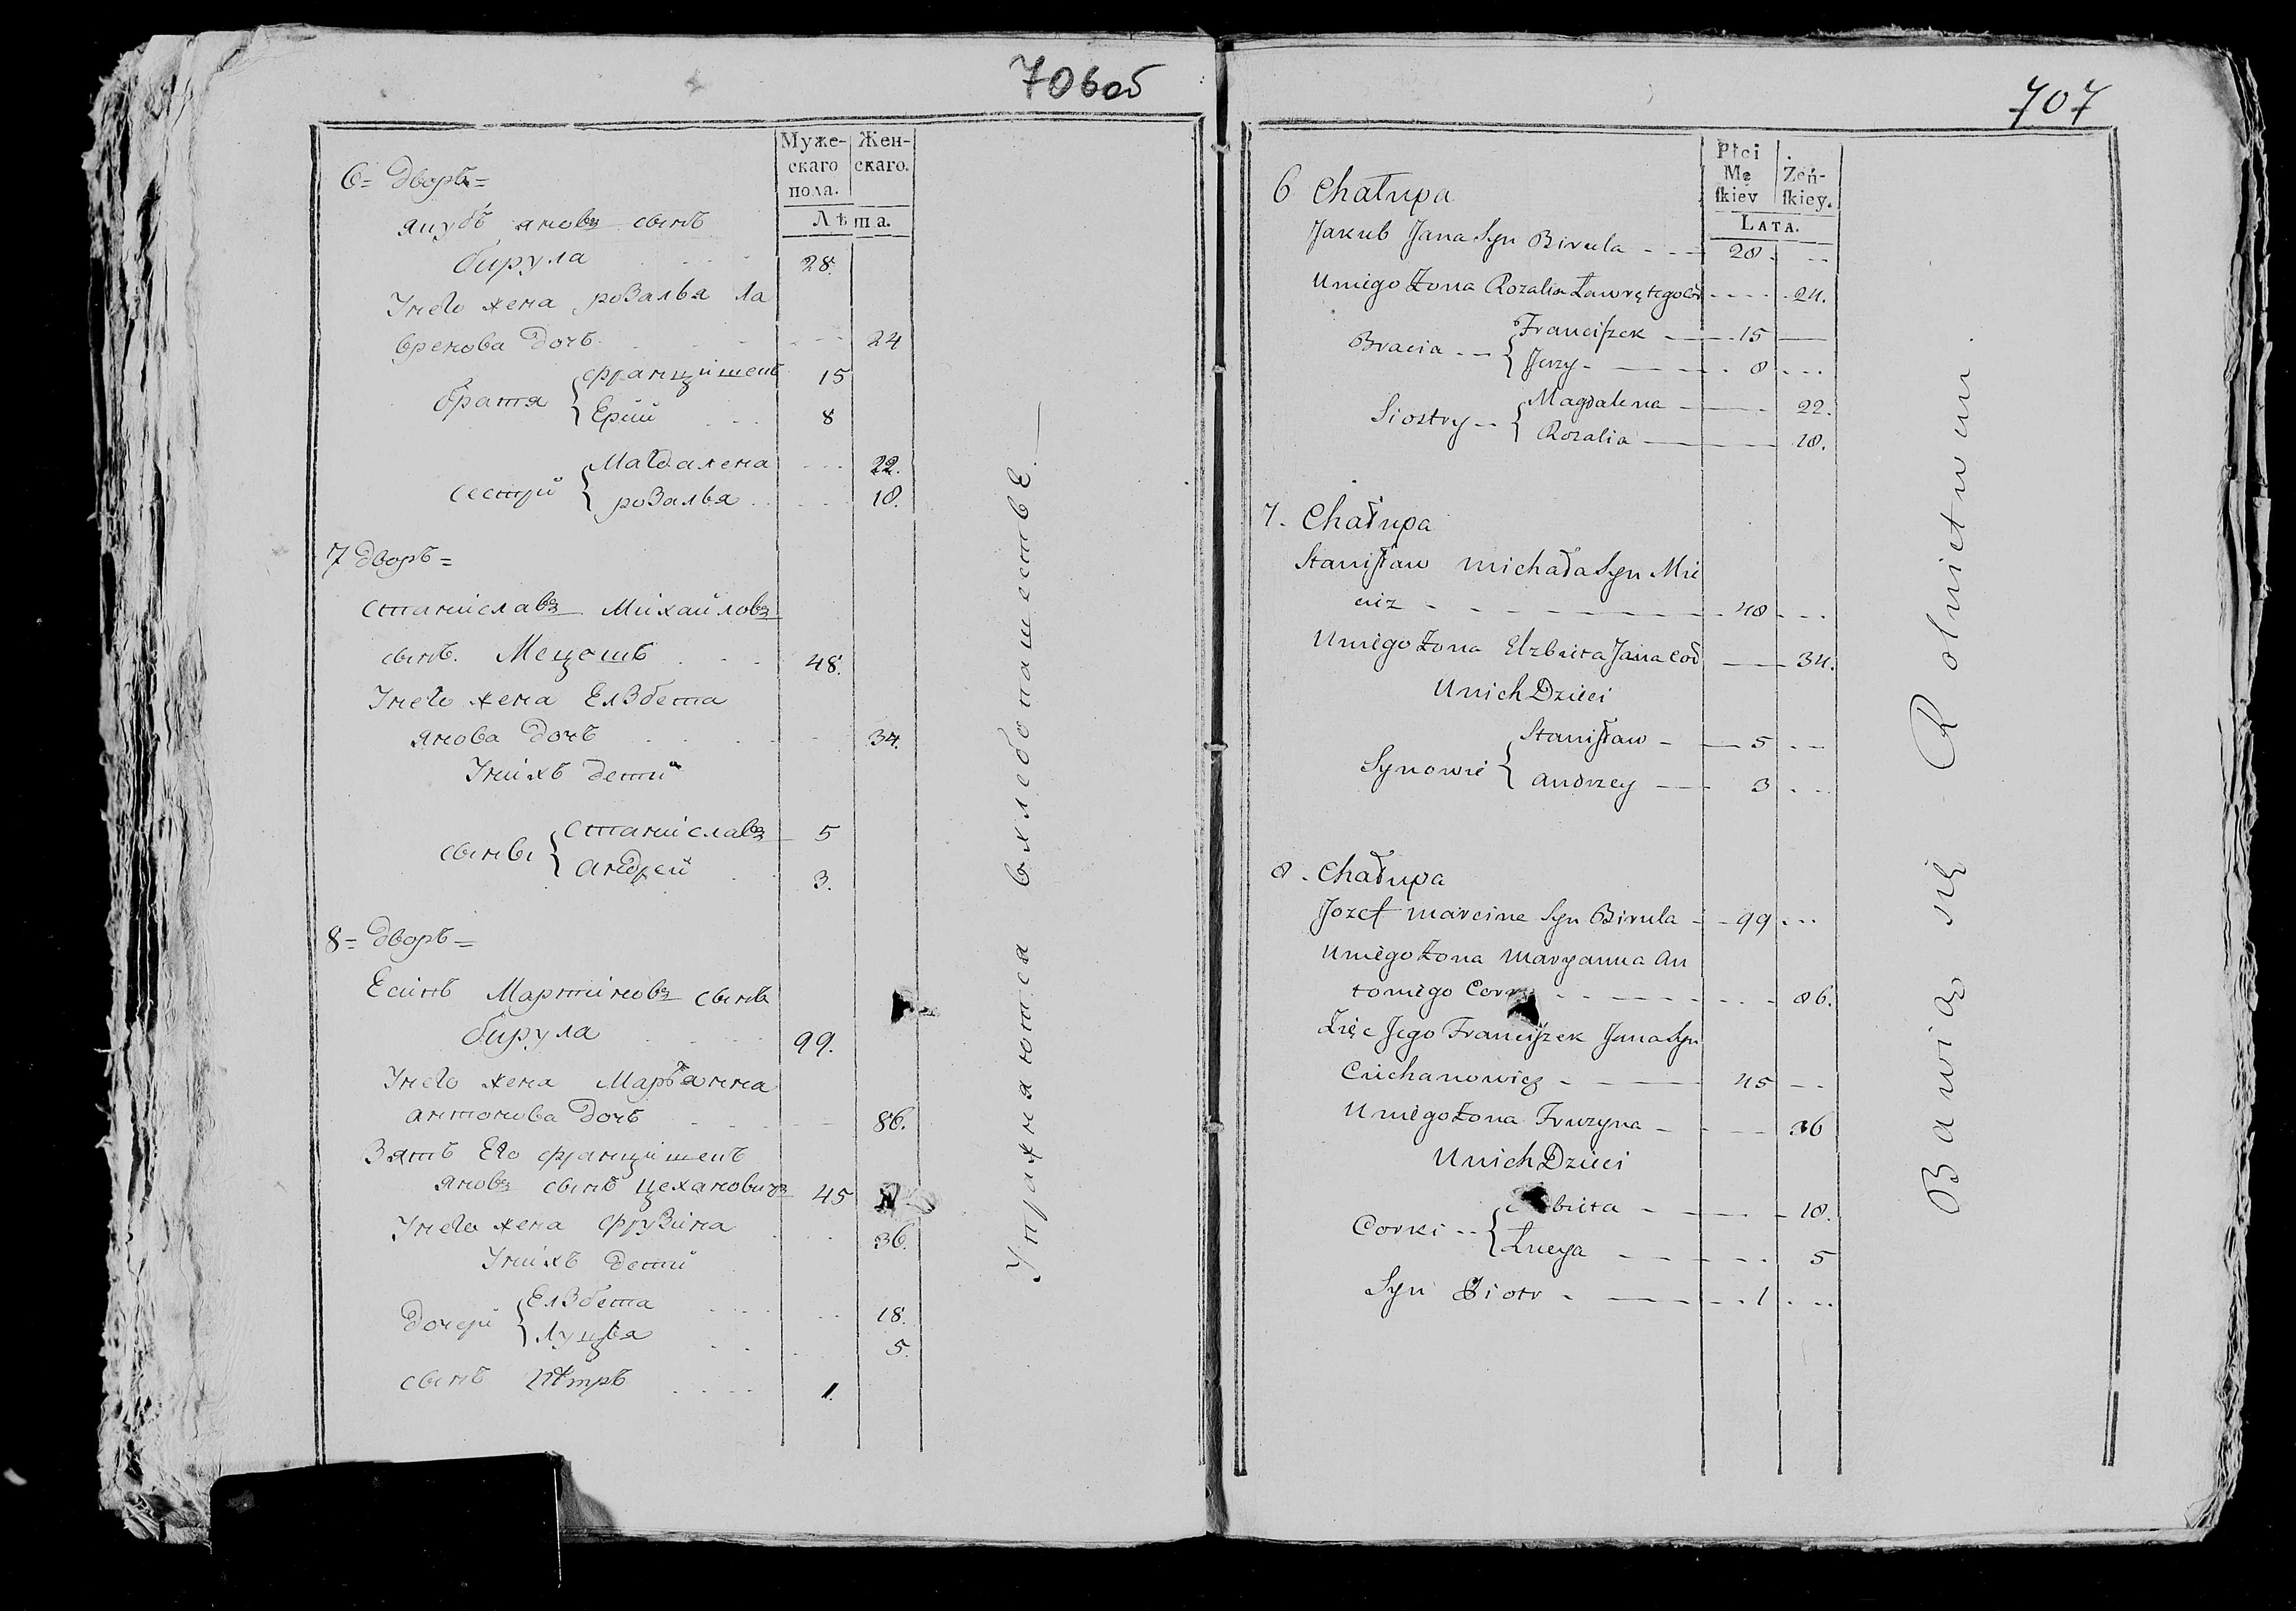 706об
Муже- Жен-
скаго скаго.
пола.
Лѣта.
6= дворъ=
якубъ яновъ сынъ
бирула 28.
Унего жена розалья ла
вренова дочь 24
братя францишекъ 15
Ерій 8
сестры Магдалена 22.
розалья 18.
7 дворъ=
станиславъ Михайловъ
сынъ. Мецешъ 48.
Унего жена Елзбета
янова дочь 34.
Унихъ дети
сынвы станиславъ 5
андрей 3.
8= дворъ=
Есипъ Мартиновъ сынъ
бирула 99.
Унего жена Марьянна
антонова дочь 86.
Зять Его францишекъ
яновъ сынъ цехановичъ 45
Унего жена фрузина 36.
Унихъ дети
дочери Елзбета 18.
Луцья 5.
сынъ Петръ 1.
Упражняются вхлебопашестве.
707
Płci
Mę Żeń-
ſkiey ſkiey.
LATA.
6 Chałupa
Jakub Jana Syn Birula 28
Uniego Żona Rozalia Ławrętego Cór 24.
Bracia Franciſzek 15
Jerzy 8
Siostry Magdalena 22.
Rozalia 18.
7. Chałupa
Staniſław michała Syn Mie
ciz 48
Uniego Żona Elzbieta Jana Cod 34.
Unich Dzieci
Synowie Staniſław 5
Andrzey 3
8. Chałupa
Jozef marcina Syn Birula 99
Uniego Żona Maryanna An
toniego Cor 86.
Zięc Jego Franciſzek Jana Syn
Ciechanowicz 45
Uniego Żona Fruzyna 36
Unich Dzieci
Corki bieta 18.
Łucya 5
Syn Piotr 1
Bawią się Rolnictwem.